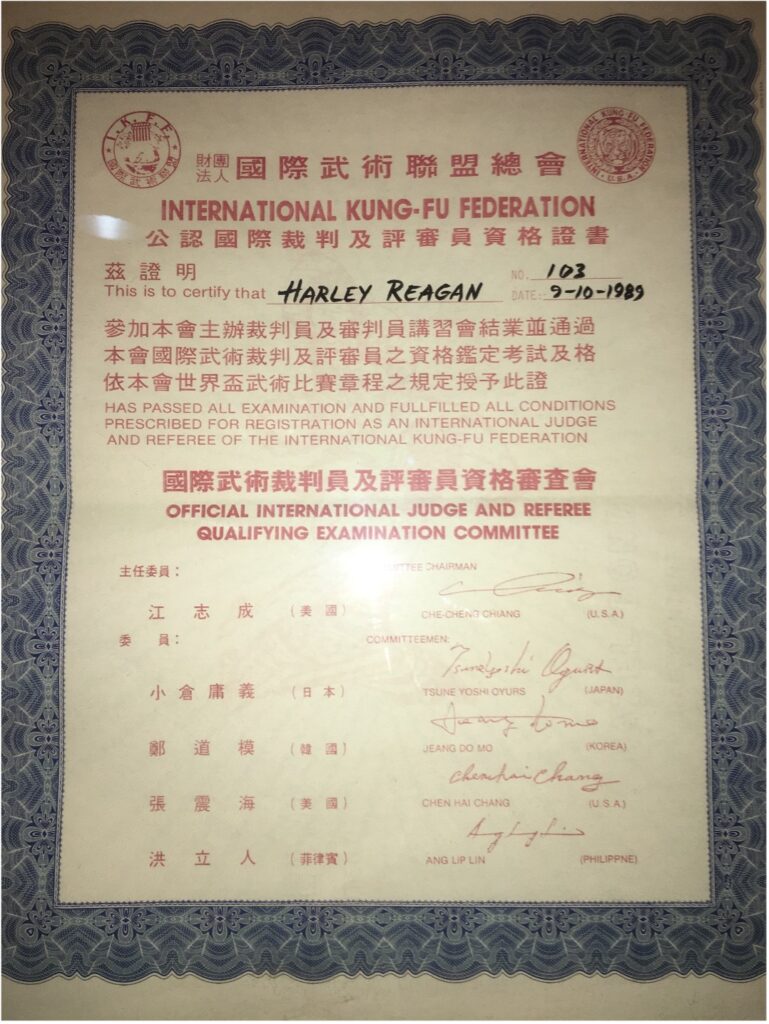 I.K.F.F. 國際武術聯盟
INTERNATIONAL KUNG-FU FEDERATION U.S.A.
財團法人 國際武術聯盟總會
INTERNATIONAL KUNG-FU FEDERATION
公認國際裁判及評審員資格證書
茲證明 NO. 103
This is to certify that HARLEY REAGAN DATE: 9-10-1989
參加本會主辦裁判員及審判員講習會結業並通過
本會國際武術裁判及評審員之資格鑑定考試及格
依本會世界盃武術比賽章程之規定授予此證
HAS PASSED ALL EXAMINATION AND FULLFILLED ALL CONDITIONS
PRESCRIBED FOR REGISTRATION AS AN INTERNATIONAL JUDGE
AND REFEREE OF THE INTERNATIONAL KUNG-FU FEDERATION
國際武術裁判員及評審員資格審查會
OFFICIAL INTERNATIONAL JUDGE AND REFEREE
QUALIFYING EXAMINATION COMMITTEE
主任委員： CHAIRMAN
江志成 (美國) CHE-CHENG CHIANG (U.S.A.)
委員： COMMITTEEMEN:
小倉庸義 (日本) TSUNE YOSHI OYURS (JAPAN)
鄭道模 (韓國) JEANG DO MO (KOREA)
chenhai Chang
張震海 (美國) CHEN HAI CHANG (U.S.A.)
洪立人 (菲律賓) ANG LIP LIN (PHILIPPNE)